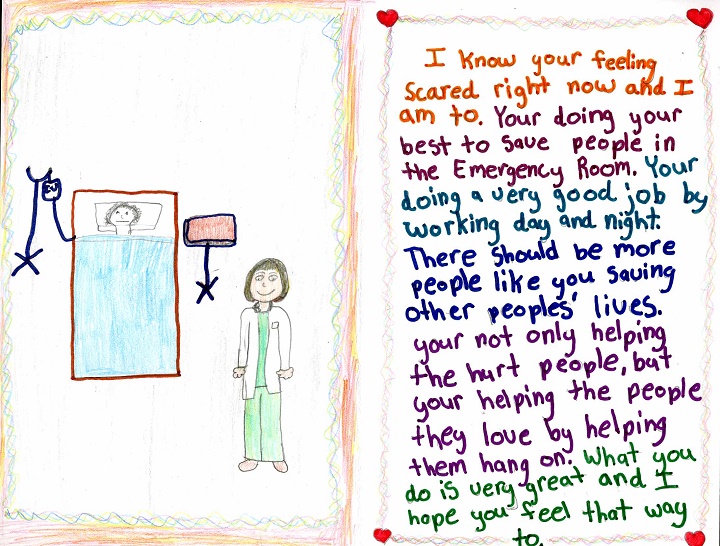 IV
I know your feeling
scared right now and I
am to. Your doing your
best to save people in
the Emergency Room. Your
doing a very good job by
working day and night.
There should be more
people like you saving
other peoples' lives.
your not only helping
the hurt people, but
your helping the people
they love by helping
them hang on. What you
do is very great and I
hope you feel that way
to.